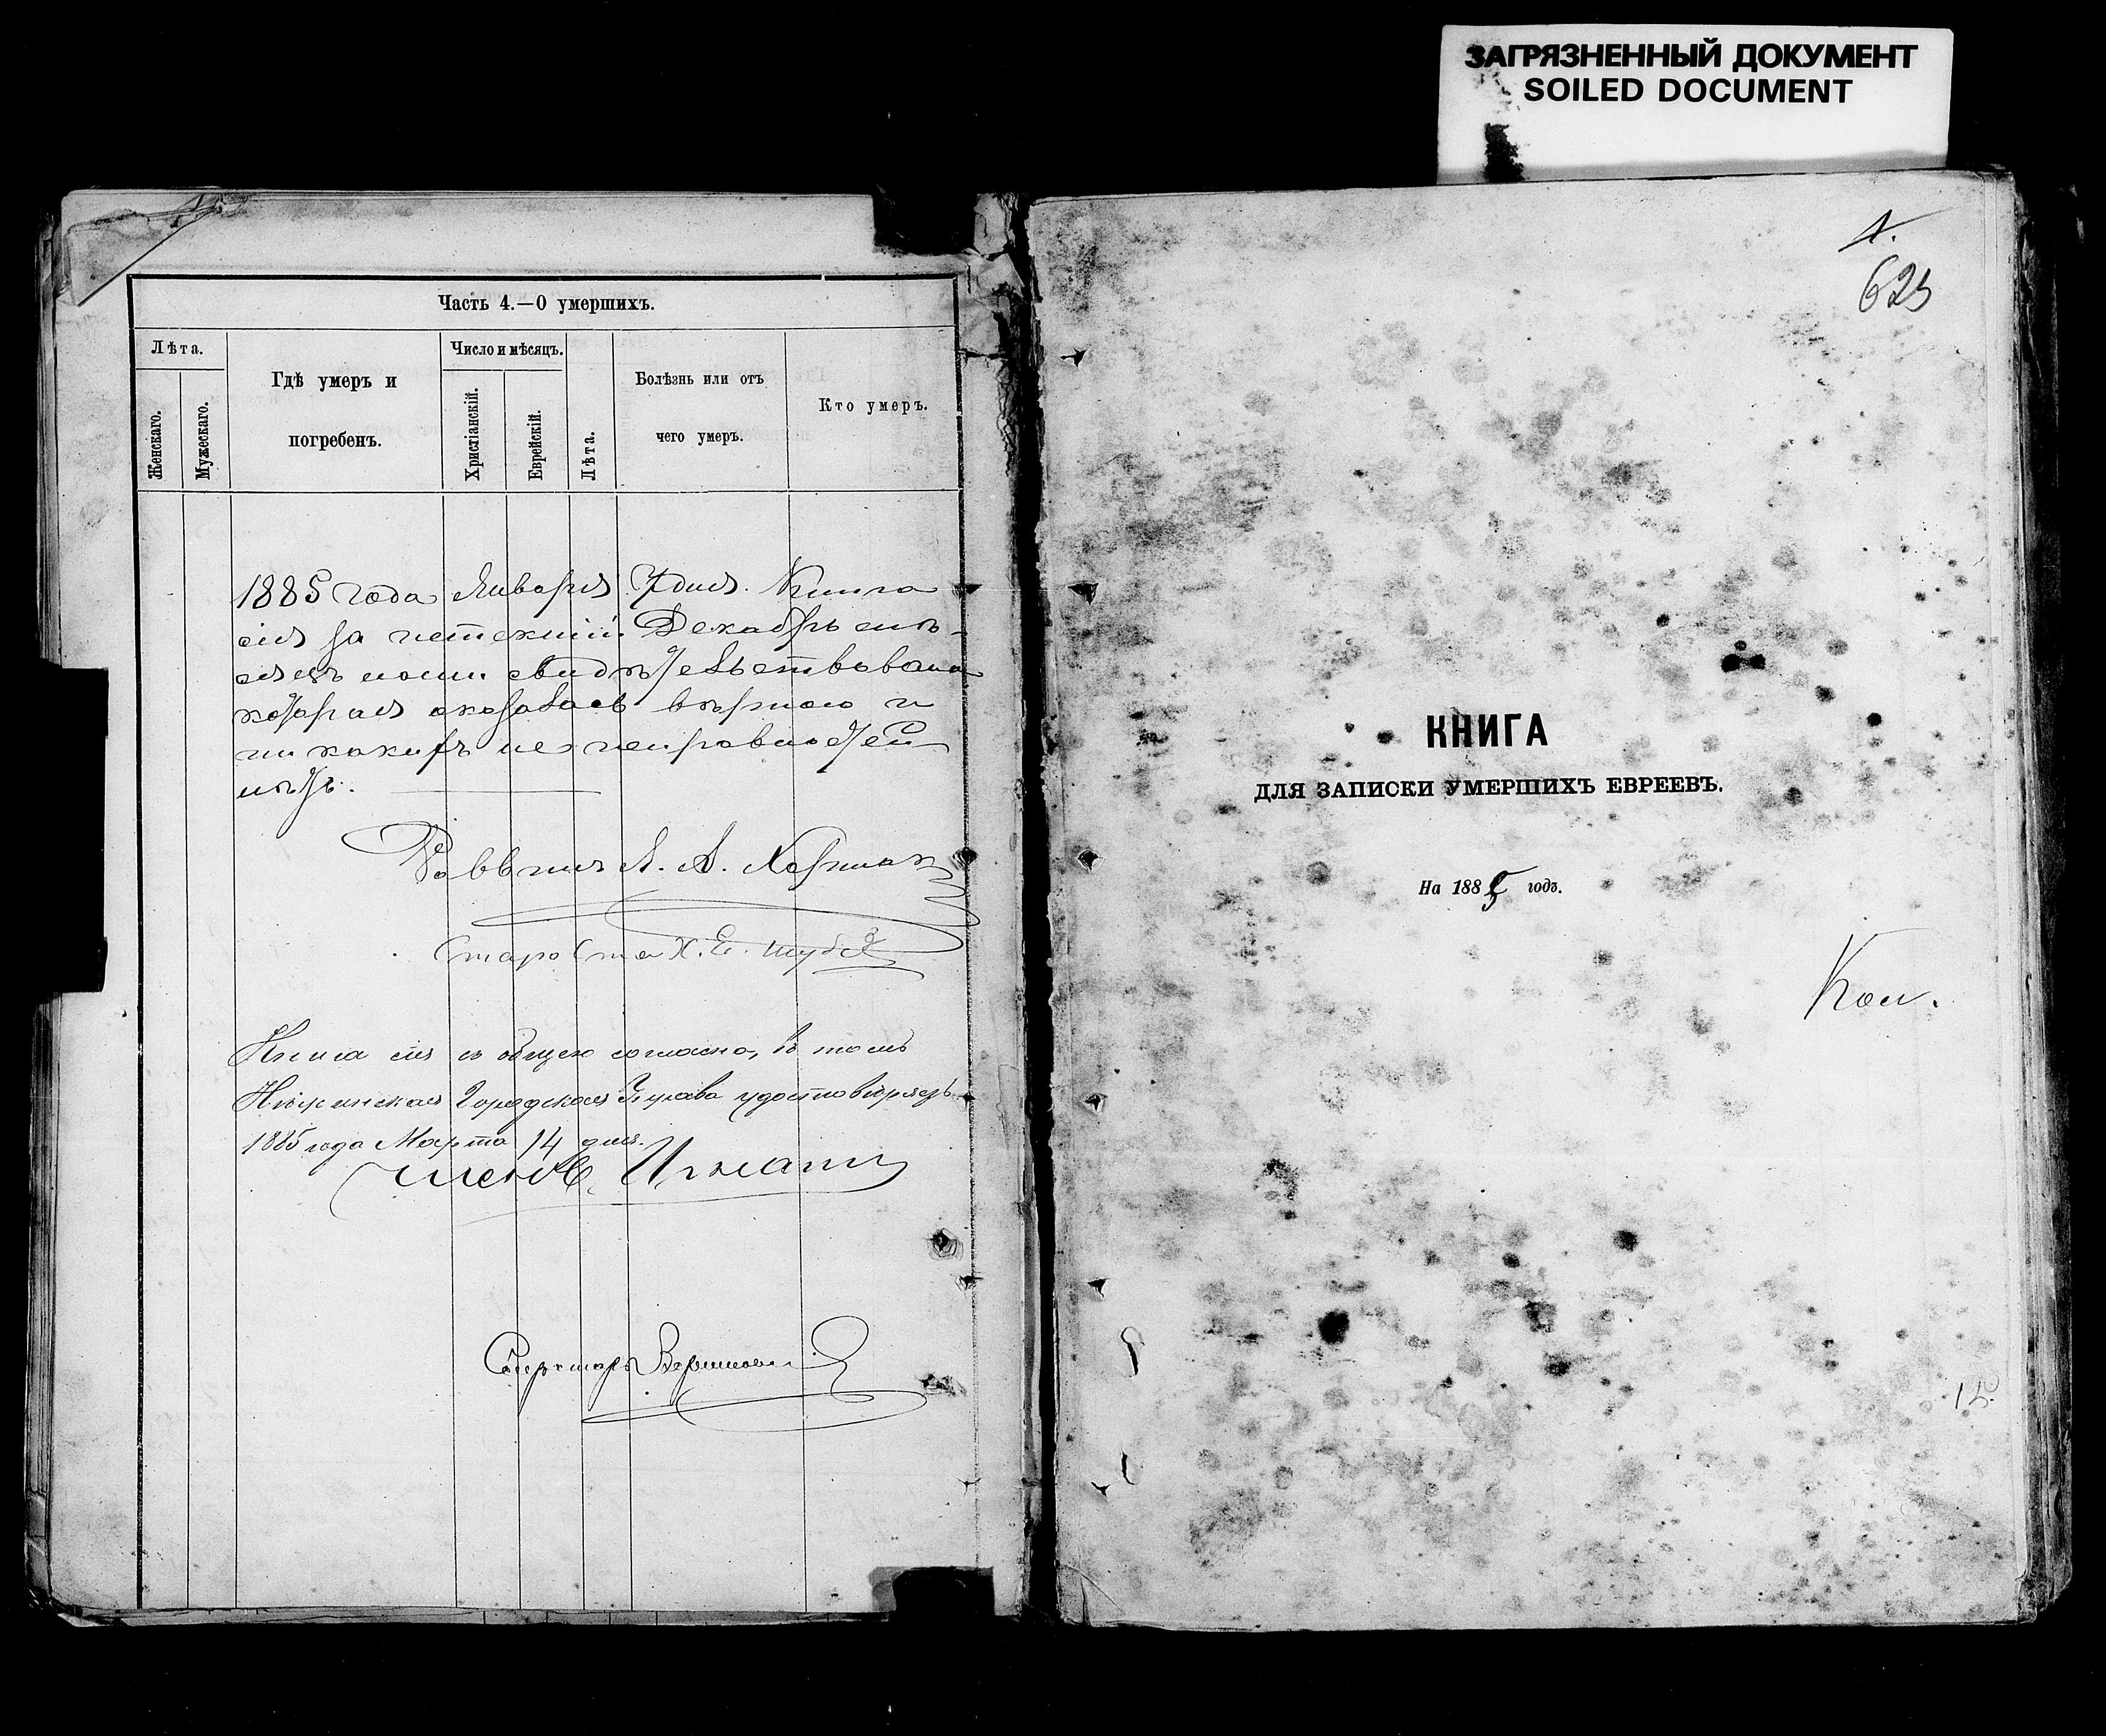 ЗАГРЯЗНЕННЫЙ ДОКУМЕНТ
SOILED DOCUMENT
Часть 4.—О умершихъ.
Лѣта.
Женскаго.
Мужескаго.
Гдѣ умеръ и
погребенъ.
Число и мѣсяцъ.
Христіанскій.
Еврейскій.
Лѣта.
Болѣзнь или отъ
чего умеръ.
Кто умеръ.
1885 года Января 7 дня. Книга
сія за истекшій Декабрь мѣ-
сяцъ нами свидѣтельствована
которая оказалась вѣрною и
ни какихъ не исправностей
нѣтъ.
Раввинъ А. А.
Староста Х. Е.
Книга сія съ общею согласна, въ томъ
Городская Управа удостовѣряетъ
1885 года Марта 14 дня.
Членъ
Секретарь
1.
625
КНИГА
ДЛЯ ЗАПИСКИ УМЕРШИХЪ ЕВРЕЕВЪ.
На 1885 годъ.